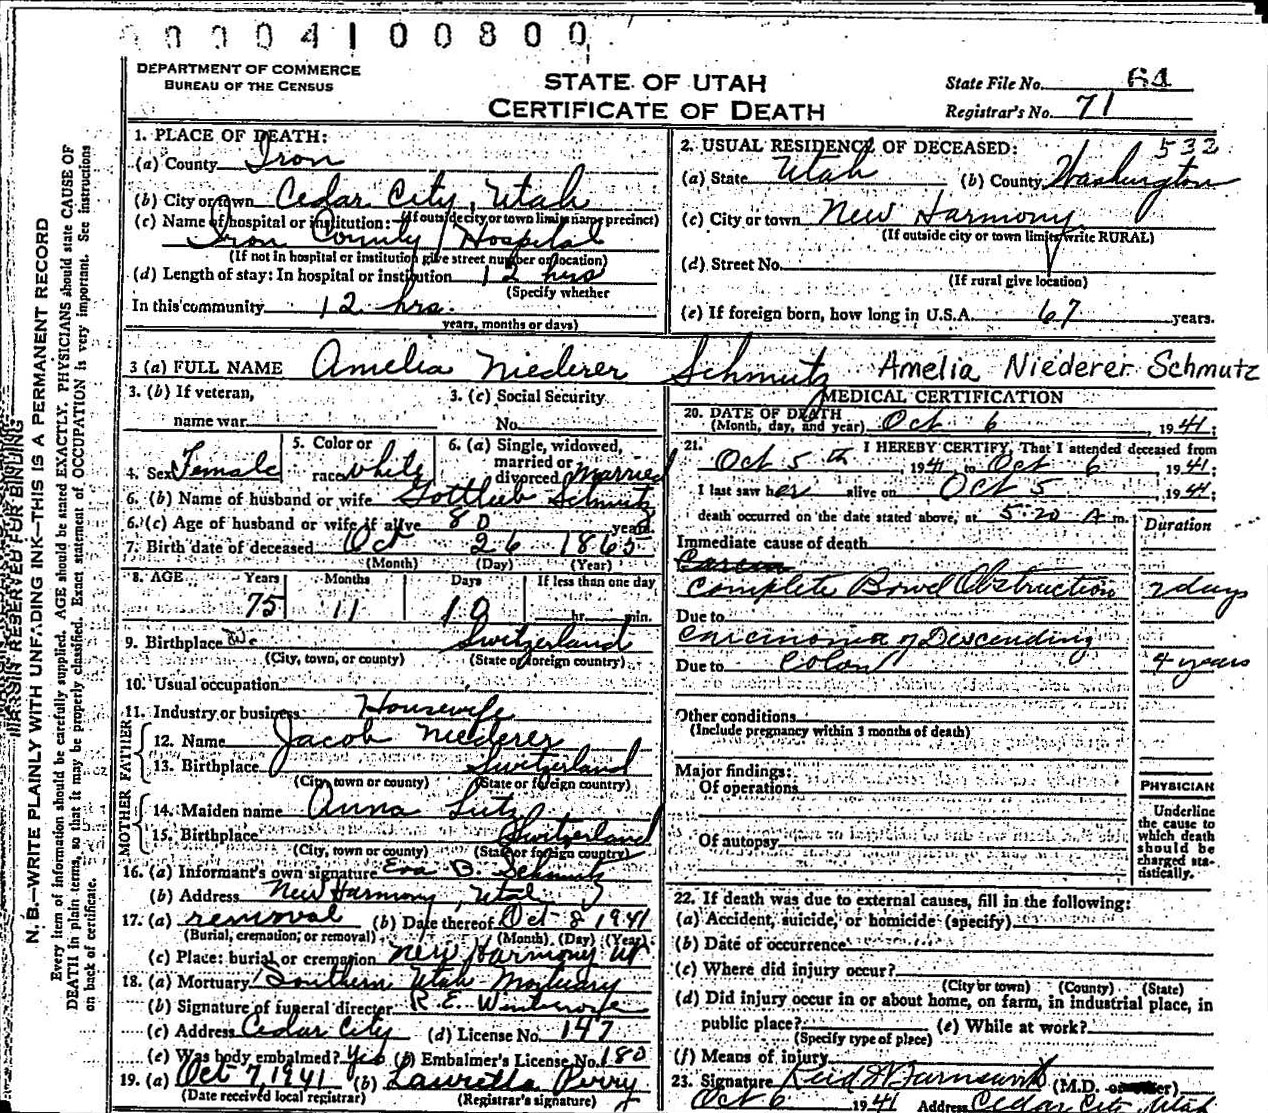 0 0 0 0 4 1 0 0 8 0 0
DEPARTMENT OF COMMERCE
BUREAU OF THE CENSUS
STATE OF UTAH
CERTIFICATE OF DEATH
State File No. 64
Registrar's No. 71
MARGIN RESERVED FOR BINDING
N. B.—WRITE PLAINLY WITH UNFADING INK—THIS IS A PERMANENT RECORD
Every item of information should be carefully supplied. AGE should be stated EXACTLY. PHYSICIANS should state CAUSE OF
DEATH in plain terms, so that it may be properly classified. Exact statement of OCCUPATION is very important. See instructions
on back of certificate.
1. PLACE OF DEATH:
(a) County Iron
(b) City or town Cedar City, Utah
(If outside city or town limits name precinct)
(c) Name of hospital or institution:
Iron County Hospital
(If not in hospital or institution give street number or location)
(d) Length of stay: In hospital or institution 12 hrs
(Specify whether
In this community 12 hrs.
years, months or days)
2. USUAL RESIDENCE OF DECEASED: 532
(a) State Utah (b) County Washington
(c) City or town New Harmony
(If outside city or town limits write RURAL)
(d) Street No.
(If rural give location)
(e) If foreign born, how long in U.S.A. 67 years.
3 (a) FULL NAME Amelia Niederer Schmutz Amelia Niederer Schmutz
3. (b) If veteran,
name war
3. (c) Social Security
No.
4. Sex Female
5. Color or
race white
6. (a) Single, widowed,
married or
divorced Married
6. (b) Name of husband or wife Gottlieb Schmutz
6. (c) Age of husband or wife if alive 80 years
7. Birth date of deceased Oct 26 1865
(Month) (Day) (Year)
8. AGE Years Months Days If less than one day
75 11 10 hr. min.
9. Birthplace Switzerland
(City, town, or county) (State or foreign country)
10. Usual occupation
11. Industry or business Housewife
FATHER
12. Name Jacob Niederer
13. Birthplace Switzerland
(City, town or county) (State or foreign country)
MOTHER
14. Maiden name Anna Lutz
15. Birthplace Switzerland
(City, town or county) (State or foreign country)
16. (a) Informant's own signature Eva B. Schmutz
(b) Address New Harmony, Utah
17. (a) removal (b) Date thereof Oct 8 1941
(Burial, cremation, or removal) (Month) (Day) (Year)
(c) Place: burial or cremation New Harmony Ut
18. (a) Mortuary Southern Utah Mortuary
(b) Signature of funeral director R. E.
(c) Address Cedar City (d) License No. 147
(e) Was body embalmed? Yes (f) Embalmer's License No. 180
19. (a) Oct 7, 1941 (b) Lauretta Perry
(Date received local registrar) (Registrar's signature)
MEDICAL CERTIFICATION
20. DATE OF DEATH
(Month, day, and year) Oct 6, 1941;
21. I HEREBY CERTIFY, That I attended deceased from
Oct 5th, 1941 to Oct 6, 1941;
I last saw her alive on Oct 5, 1941;
death occurred on the date stated above, at 5:20 A m.
Duration
Immediate cause of death
Complete Bowel Obstruction 7 days
Due to
Carcinoma of Descending
Due to Colon 4 years
Other conditions
(Include pregnancy within 3 months of death)
Major findings:
Of operations
Of autopsy
PHYSICIAN
Underline
the cause to
which death
should be
charged sta-
tistically.
22. If death was due to external causes, fill in the following:
(a) Accident, suicide, or homicide (specify)
(b) Date of occurrence
(c) Where did injury occur?
(City or town) (County) (State)
(d) Did injury occur in or about home, on farm, in industrial place, in
public place? (e) While at work?
(Specify type of place)
(f) Means of injury
23. Signature Reid J Farnsworth (M.D. or other)
Oct 6 1941 Address Cedar City, Utah